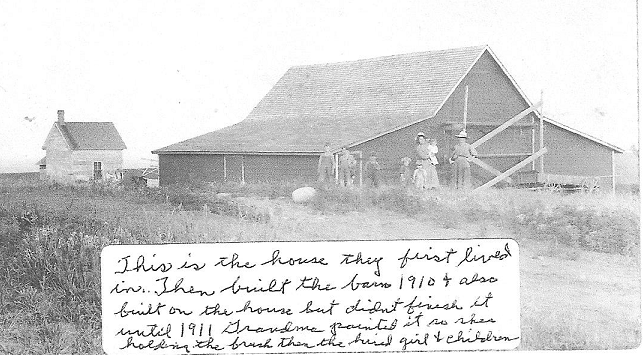 This is the house they first lived
in. Then built the barn 1910 & also
built on the house but didnt finish it
until 1911 Grandma painted it so shes
holding the brush then the hired girl & children